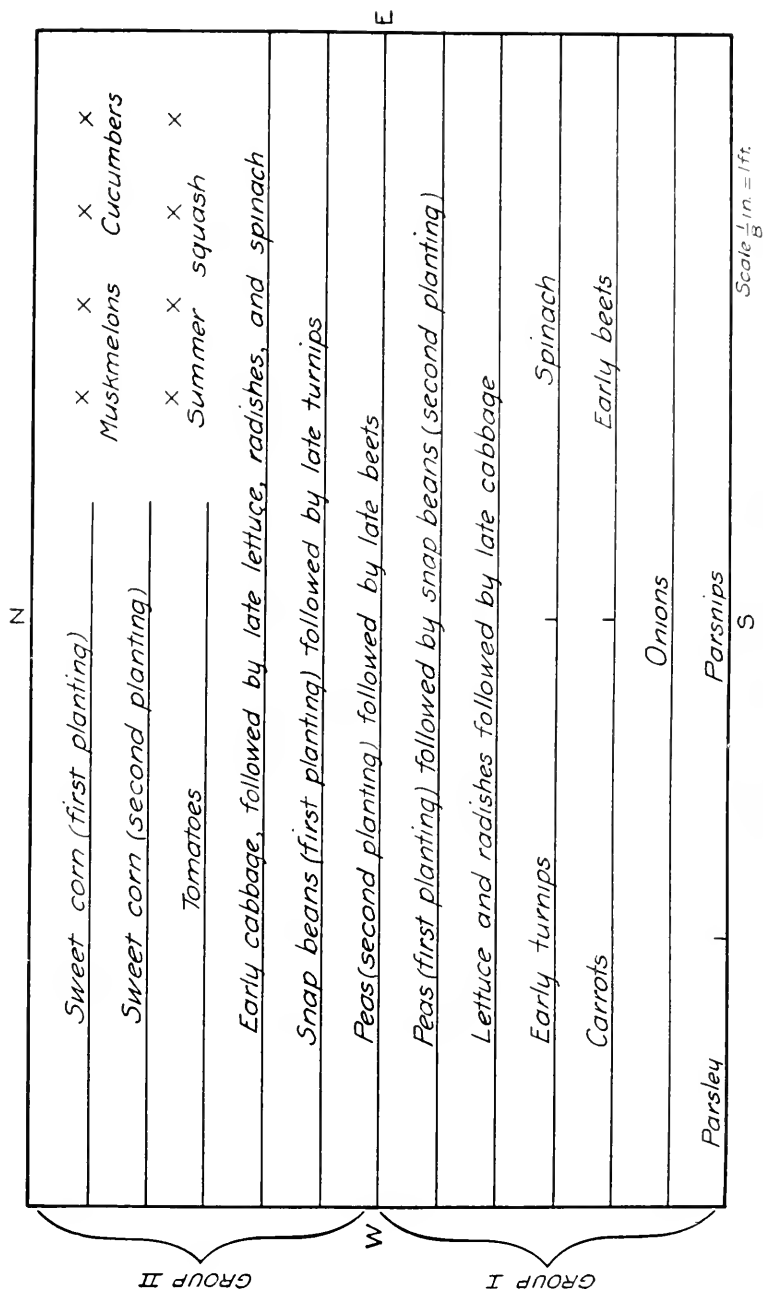 N
Sweet corn (first planting)
Muskmelons Cucumbers
Sweet corn (second planting)
Summer squash
Tomatoes
Early cabbage, followed by late lettuce, radishes, and spinach
Snap beans (first planting) followed by late turnips
Peas (second planting) followed by late beets
W
E
Peas (first planting) followed by snap beans (second planting)
Lettuce and radishes followed by late cabbage
Early turnips Spinach
Carrots Early beets
Onions
Parsley Parsnips
S
Scale 1/8 in. = 1 ft.
GROUP II
GROUP I